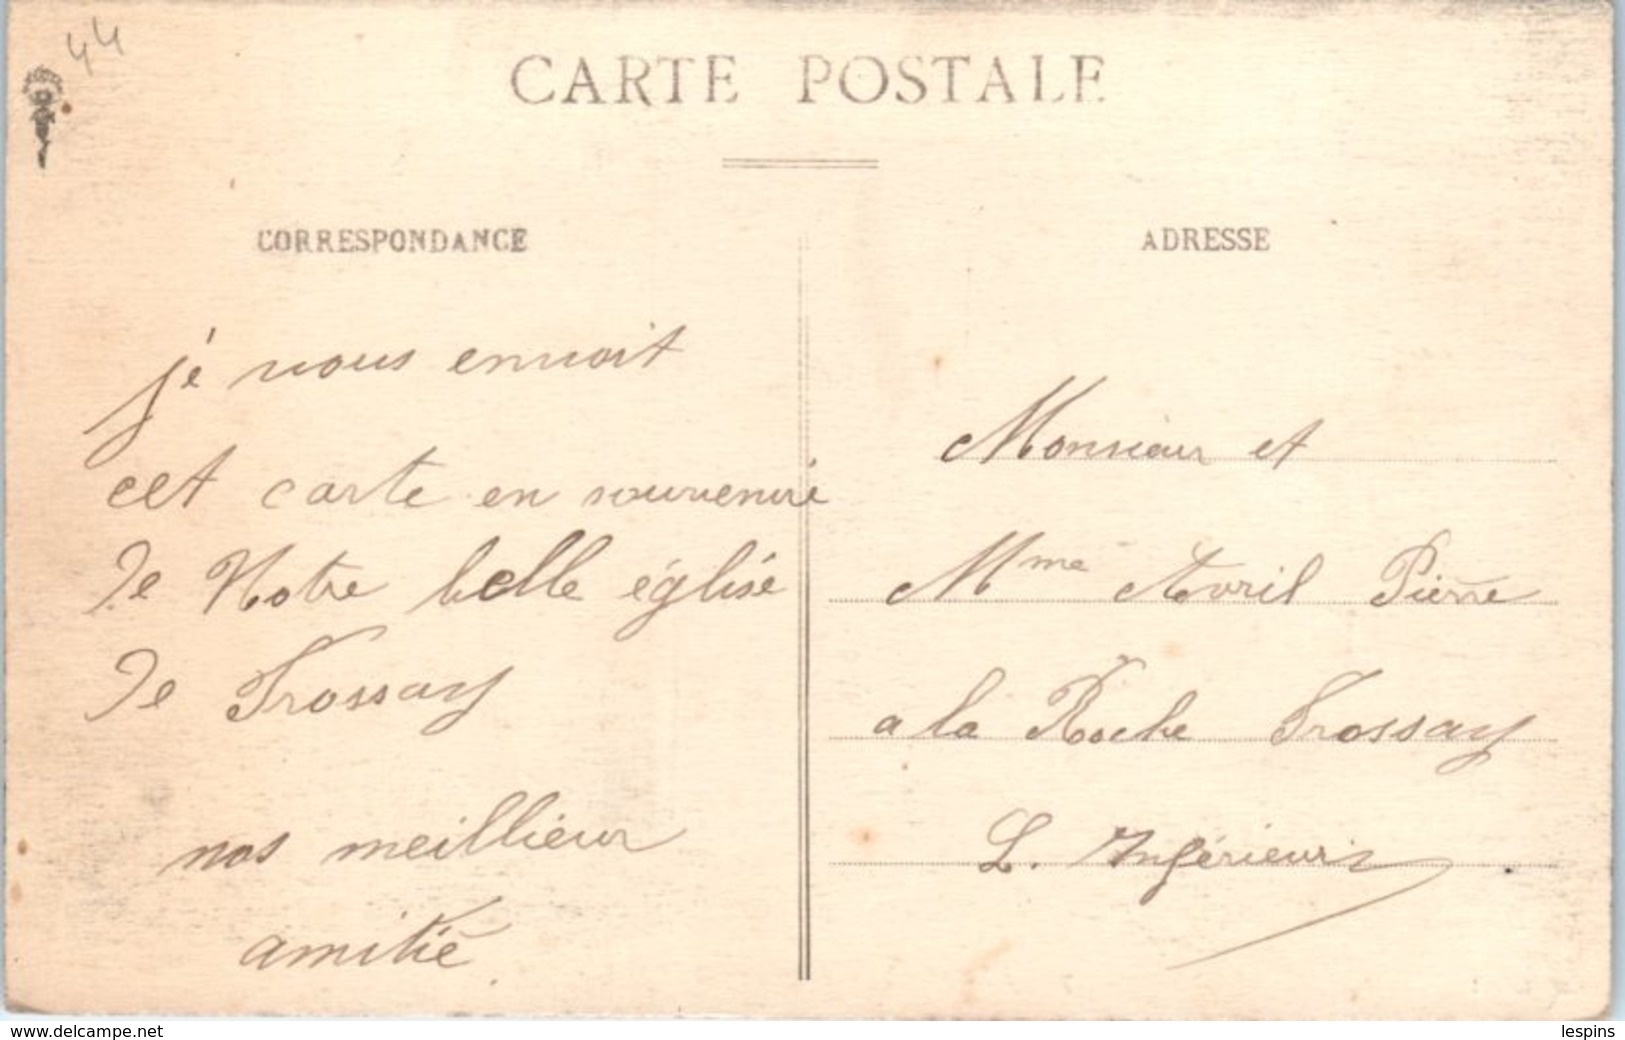 44
CARTE POSTALE
CORRESPONDANCE
je vous envoit
cet carte en souvenire
de Notre belle église
de Frossay
nos meillieur
amitié
ADRESSE
Monsieur et
Mme Avril Pierre
a la Roche Frossay
L. Inférieur
www.delcampe.net
lespins